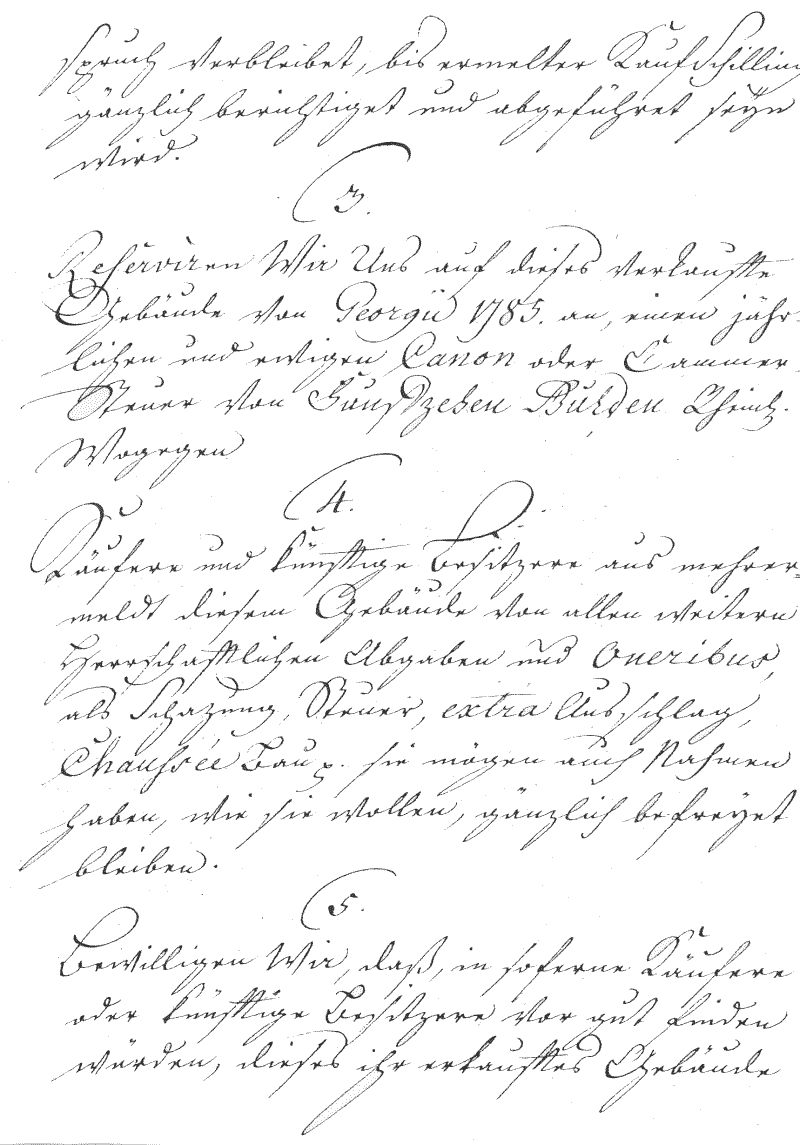 spruch verbleibet, bis ermelter Kauf Schilling
gänzlich berichtiget und abgeführet seÿn
wird.
3.
Reserviren Wir Uns auf dieses verkauffte
Gebäude von Georgii 1785. an, einen jähr-
lichen und ewigen Canon oder Cammer-
Steuer von Funffzehen Gulden Rheinl.
Wogegen
4.
Käufere und künfftige Besitzere aus mehrer-
meldt diesem Gebäude von allen weitern
Herrschafftlichen Abgaben und Oneribus,
als Schazung, Steuer, extra Ausschlag,
Chaussée Bau p. sie mögen auch Nahmen
haben, wie sie wollen, gänzlich befreyet
bleiben.
5.
Bewilligen Wir, daß, in soferne Käufere
oder künfftige Besitzere vor gut finden
würden, dieses ihr erkaufftes Gebäude